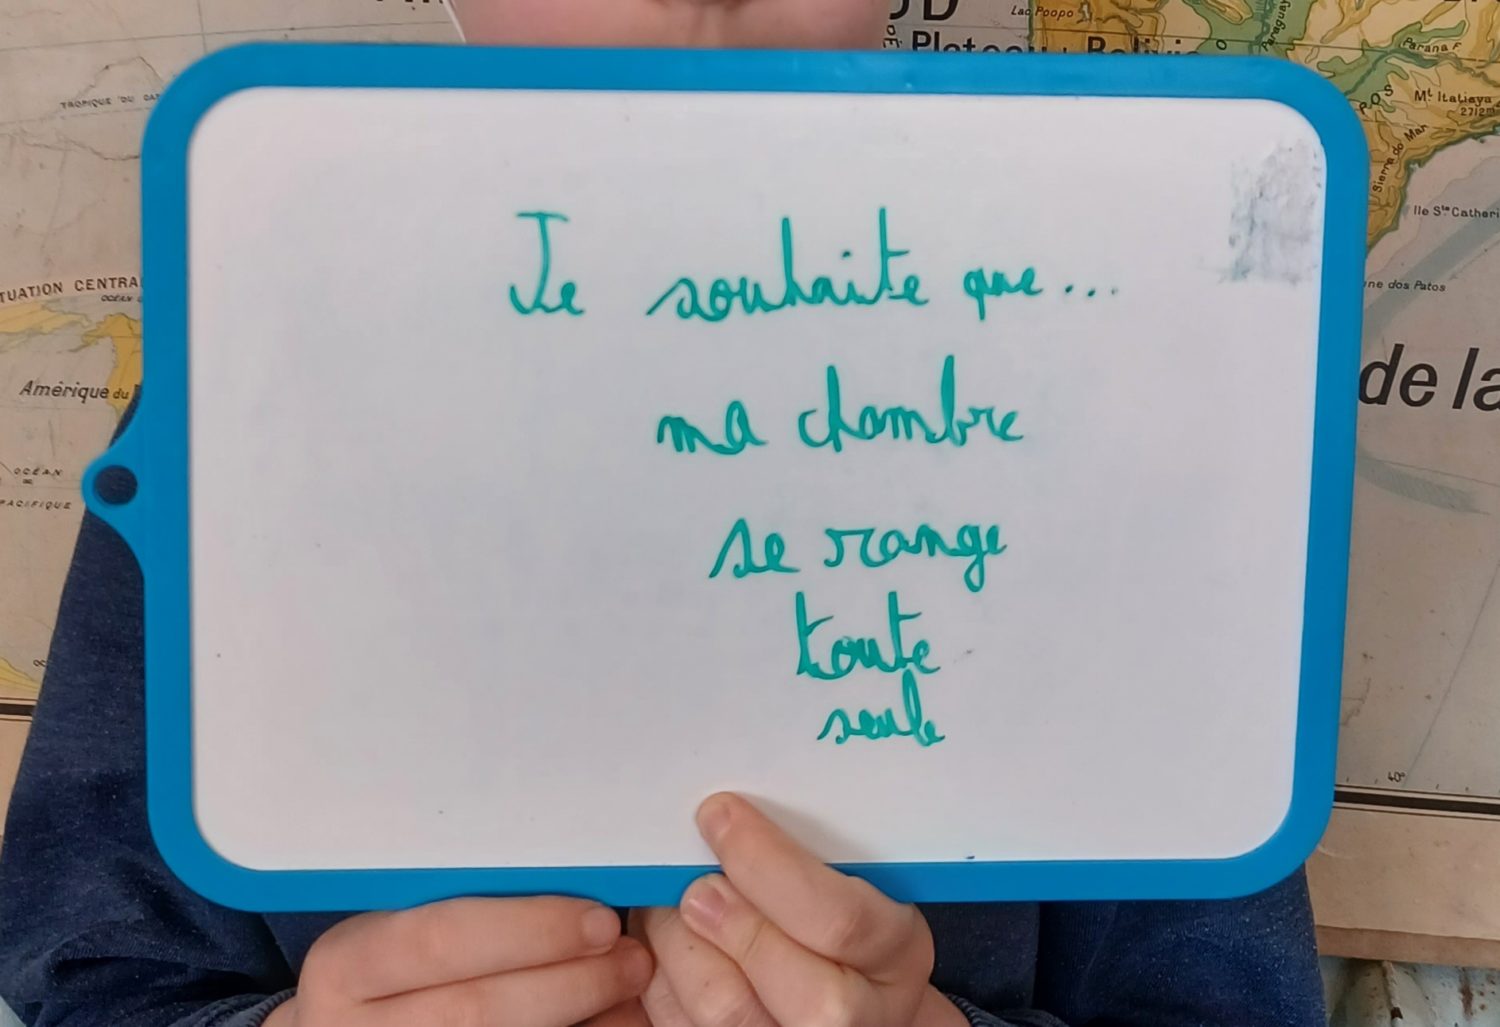 Je souhaite que...
ma chambre
se range
toute
seule
Lac Poopo
Plateau
Bolivie
Paraguay
Parana F.
Mt Itatiaya
2712m
POS
Sierra do Mar
Ile Ste Catheri
ne dos Patos
de la
40°
TROPIQUE DU
TUATION CENTRA
OCEAN
Amérique du
OCÉAN
PACIFIQUE